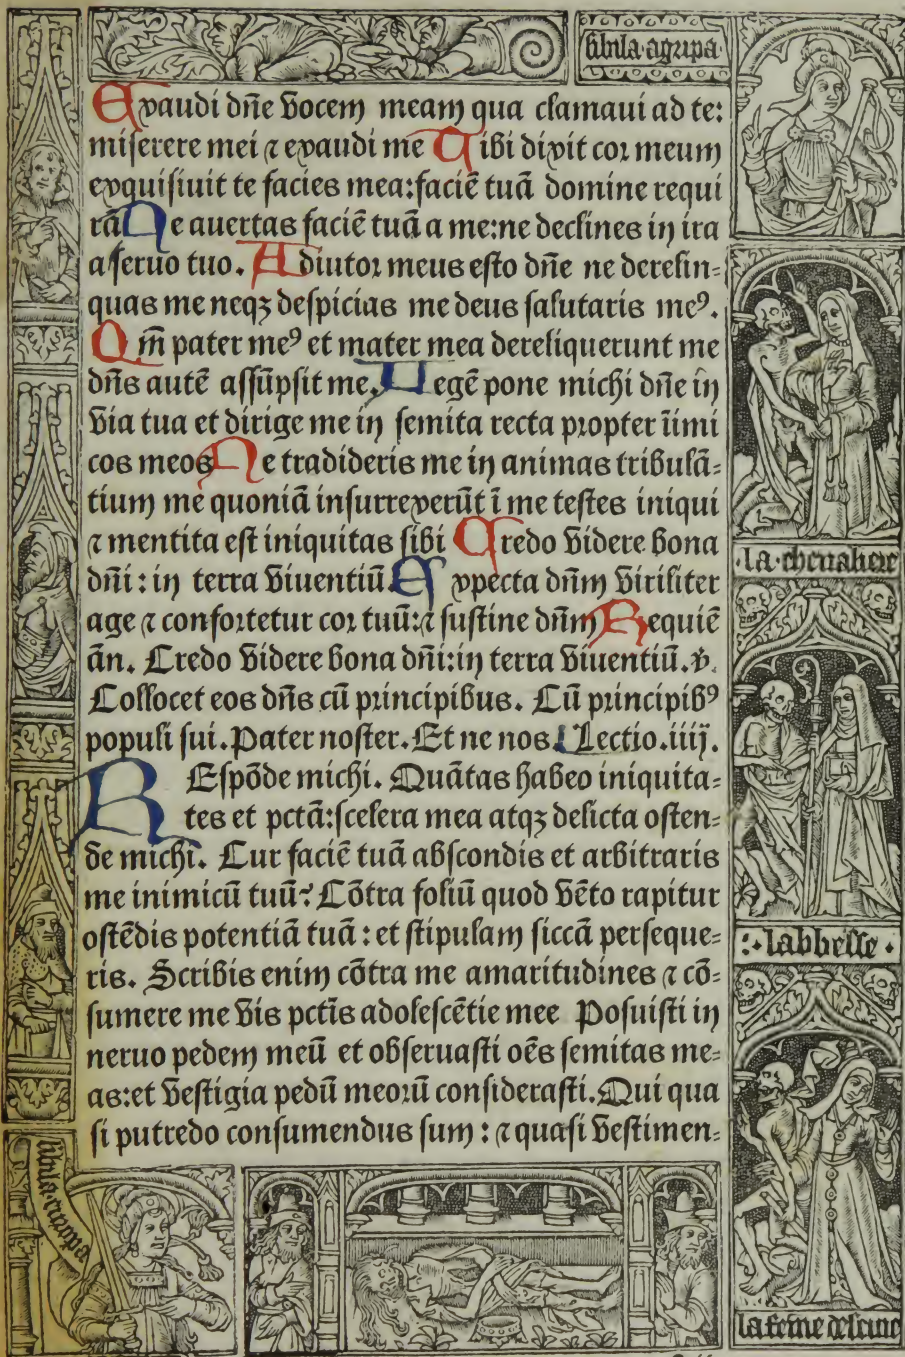 sibila agripa
Exaudi dñe vocem meam qua clamaui ad te:
miserere mei ⁊ exaudi me Tibi dixit cor meum
exquisiuit te facies mea: faciẽ tuã domine requi
rã Ne auertas faciẽ tuã a me: ne declines in ira
a seruo tuo. Adiutor meus esto dñe ne derelin=
quas me neqꝫ despicias me deus salutaris meꝰ.
Qm̃ pater meꝰ et mater mea dereliquerunt me
dñs autẽ assũpsit me. Legẽ pone michi dñe in
via tua et dirige me in semita recta propter iĩmi
cos meos Ne tradideris me in animas tribulã=
tium me quoniã insurrexerũt ĩ me testes iniqui
⁊ mentita est iniquitas sibi Credo videre bona
dñi: in terra viuentiũ. Expecta dñm viriliter
age ⁊ confortetur cor tuũ: ⁊ sustine dñm Requiẽ
ãn. Credo videre bona dñi: in terra viuentiũ. ℣.
Collocet eos dñs cũ principibus. Cũ principibꝰ
populi sui. Pater noster. Et ne nos. Lectio. iiij.
REspõde michi. Quãtas habeo iniquita=
tes et pctã: scelera mea atqꝫ delicta osten=
de michi. Cur faciẽ tuã abscondis et arbitraris
me inimicũ tuũ? Cõtra foliũ quod vẽto rapitur
ostẽdis potentiã tuã: et stipulam siccã perseque=
ris. Scribis enim cõtra me amaritudines ⁊ cõ=
sumere me vis pctĩs adolescẽtie mee Posuisti in
neruo pedem meũ et obseruasti oẽs semitas me=
as: et vestigia pedũ meorũ considerasti. Qui qua
si putredo consumendus sum: ⁊ quasi vestimen=
la cheualiere
labbesse
la fẽme descine
sibila europa